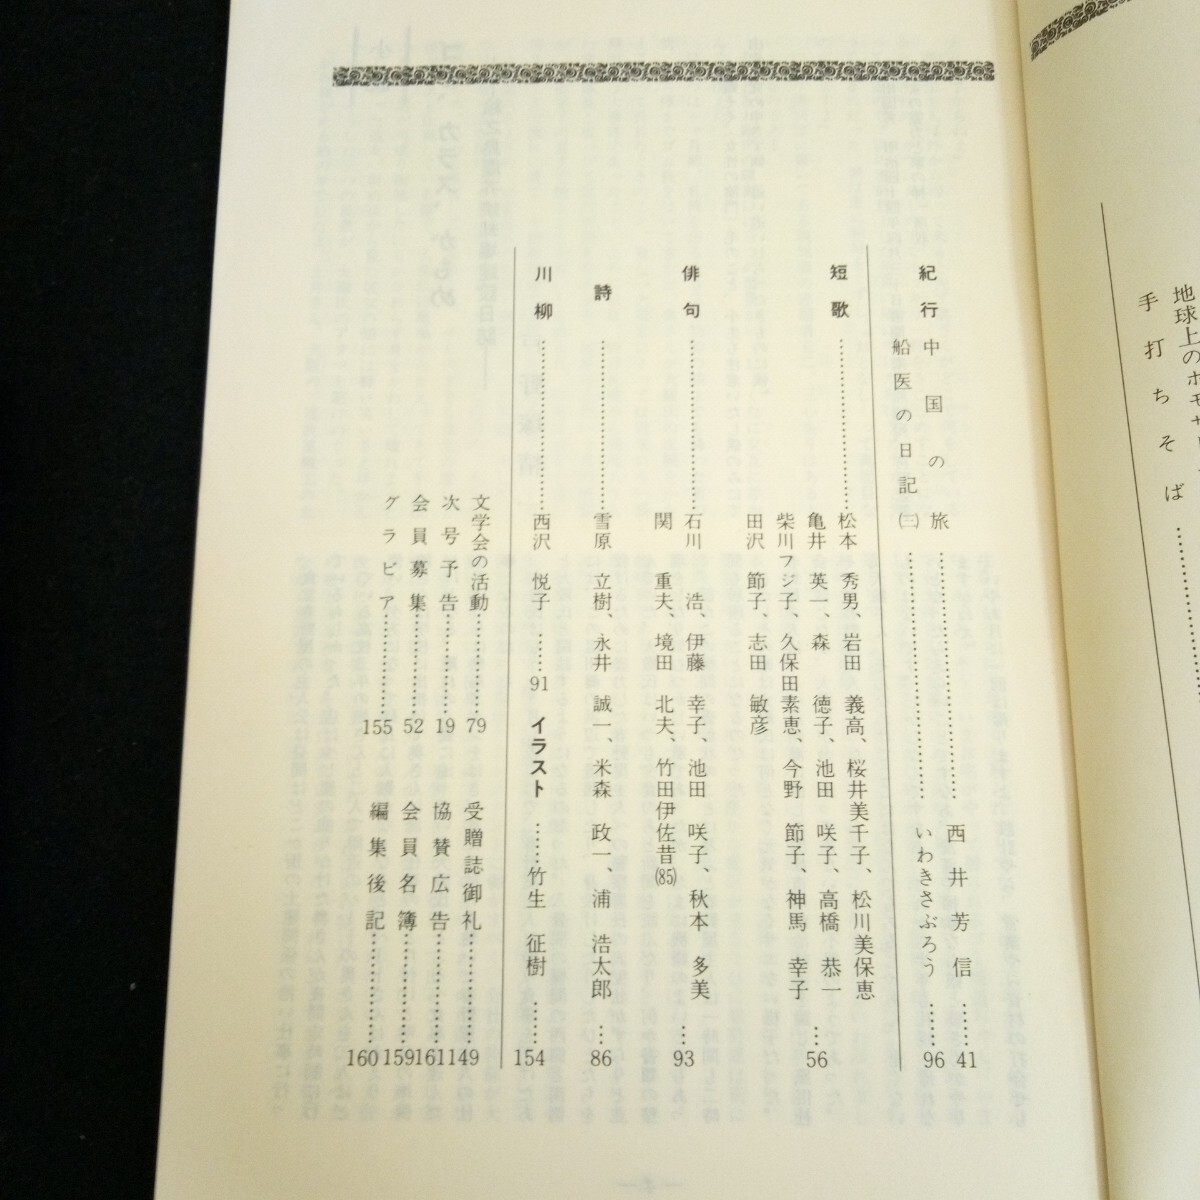 地球上のホモサ
手打ちそば……………
紀行 中国の旅……………西井芳信……41
船医の日記(三)……………いわきさぶろう……96
短歌……………松本 秀男、岩田 義高、桜井美千子、松川美保恵
亀井 英一、森 徳子、池田 咲子、高橋 恭一…56
柴川フジ子、久保田素恵、今野 節子、神馬 幸子
田沢 節子、志田 敏彦
俳句……………石川 浩、伊藤 幸子、池田 咲子、秋本 多美…93
関 重夫、境田 北夫、竹田伊佐昔(85)
詩……………雪原 立樹、永井 誠一、米森 政一、浦 浩太郎…86
川柳……………西沢 悦子……91 イラスト……竹生 征樹……154
文学会の活動……………79 受贈誌御礼……………149
次号予告……………19 協賛広告……………161
会員募集……………52 会員名簿……………159
グラビア……………155 編集後記……………160